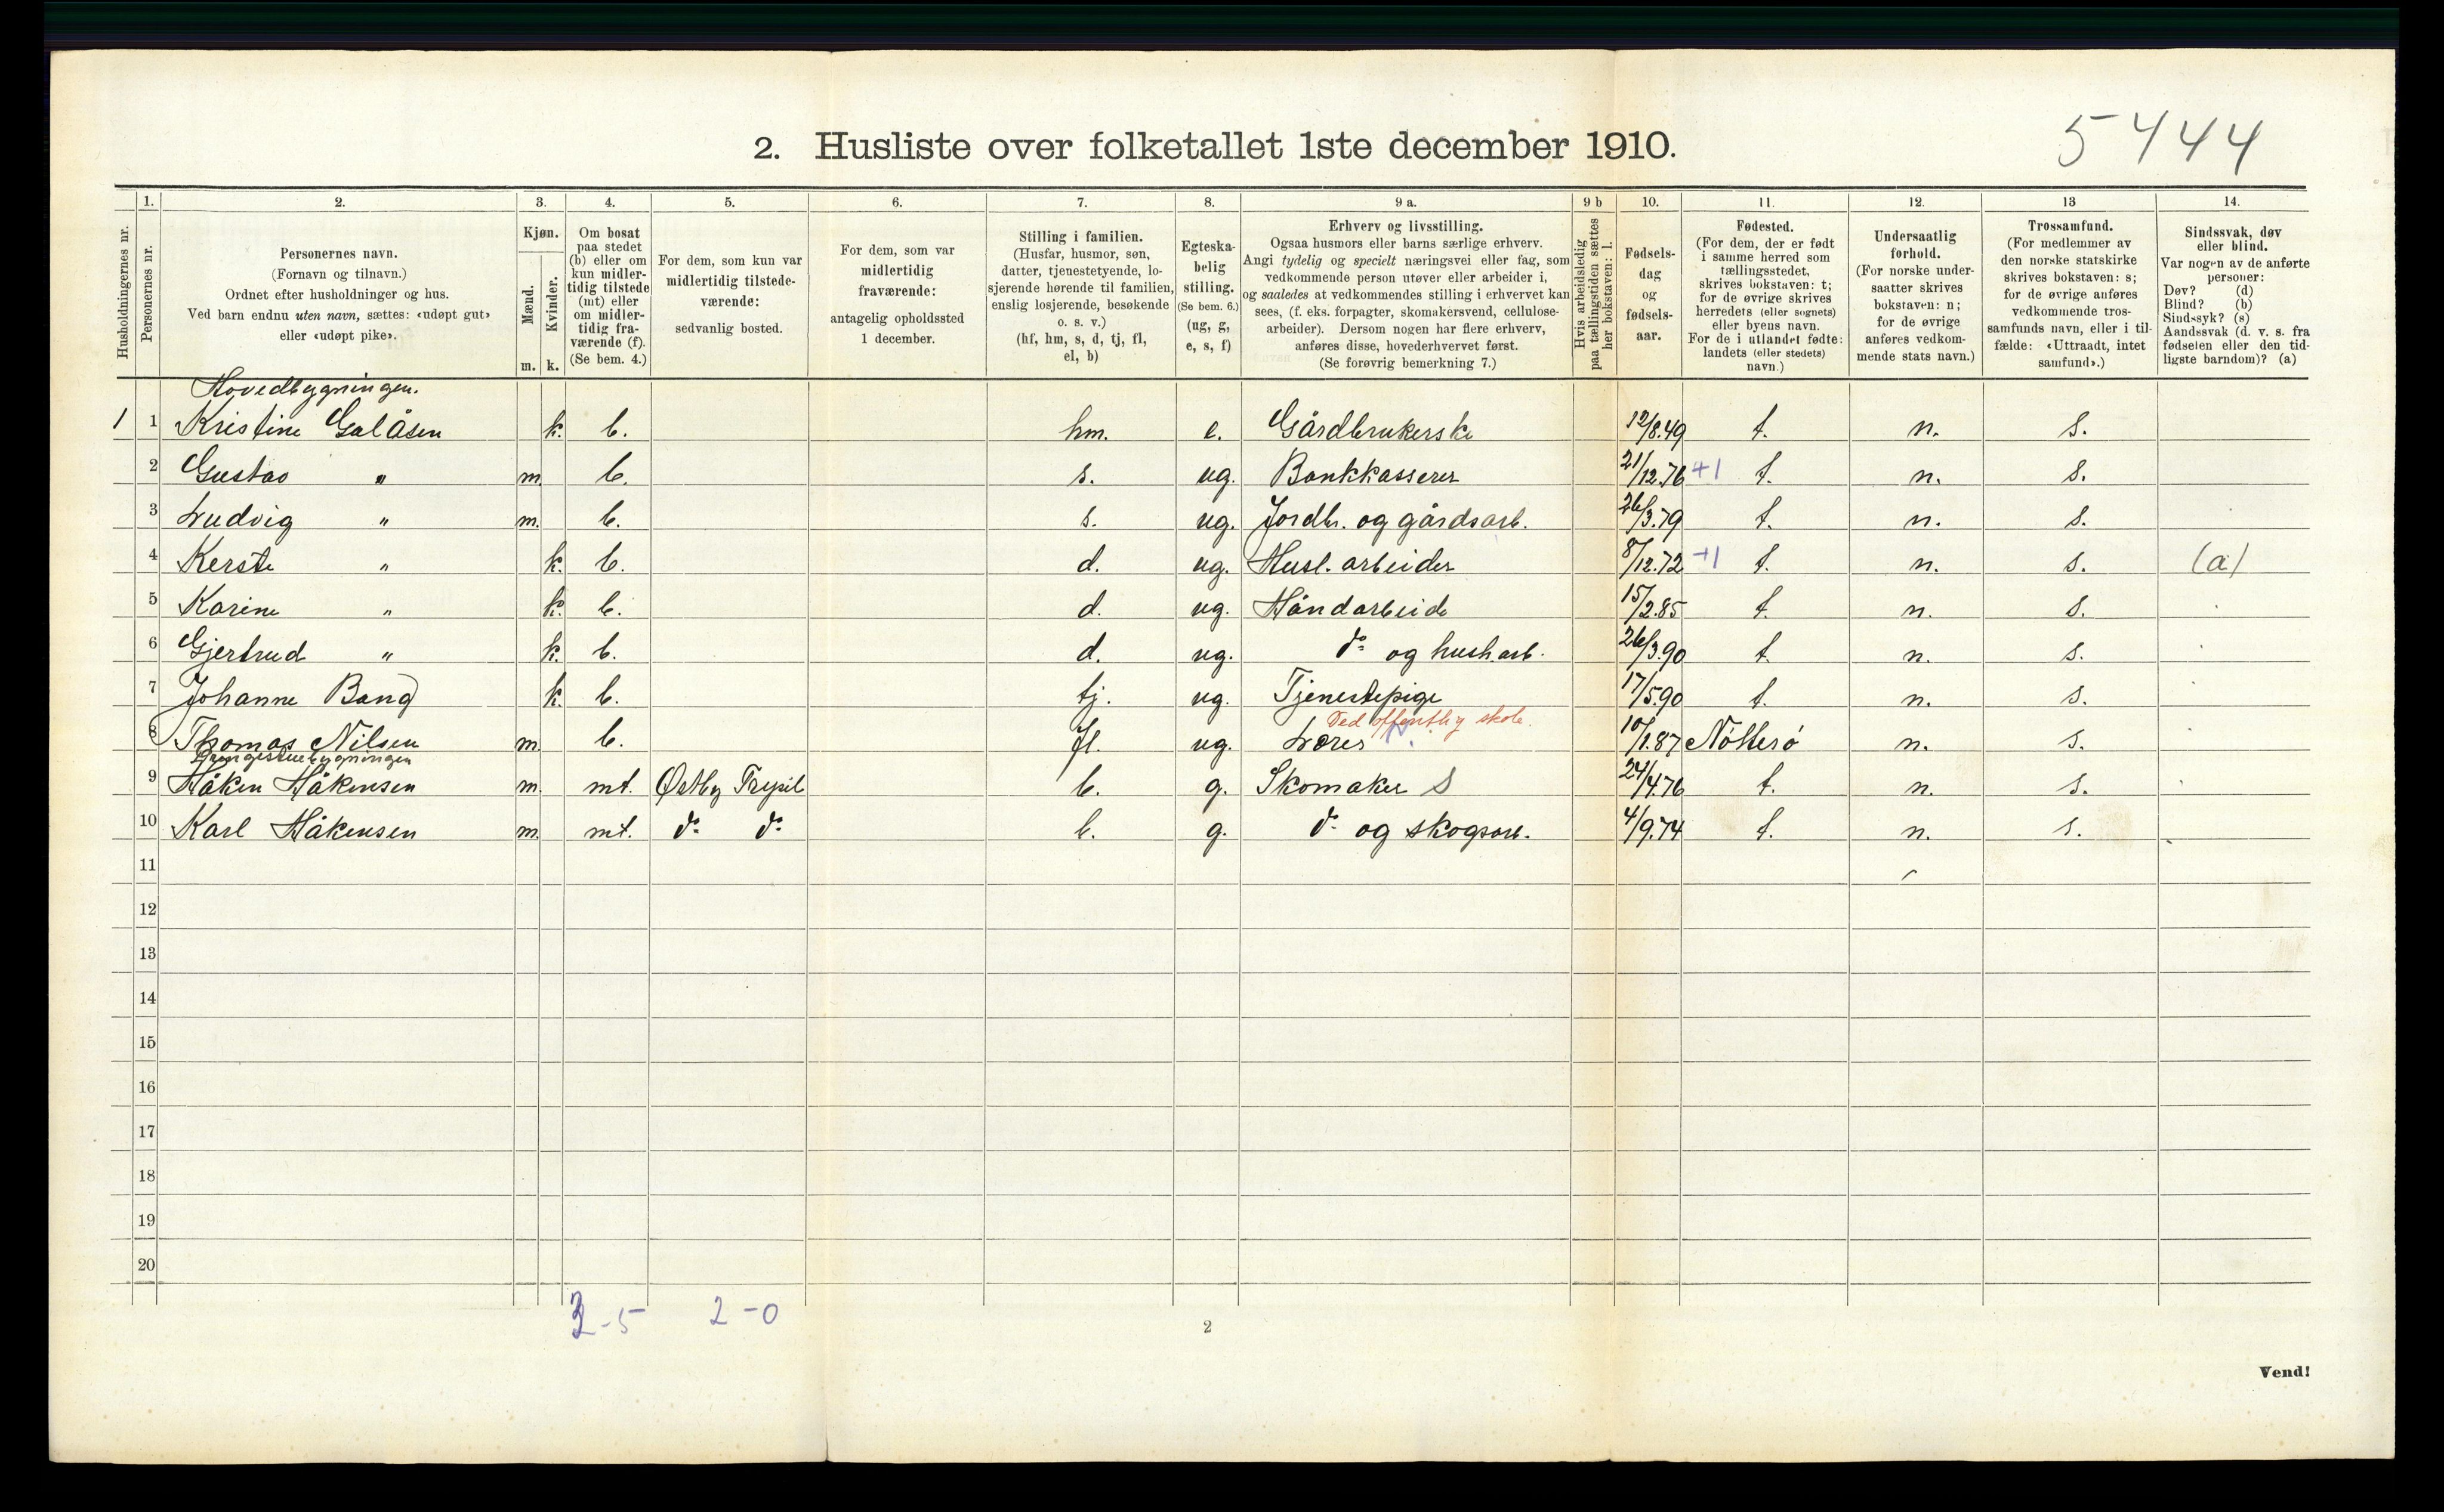 5444
2. Husliste over folketallet 1ste december 1910.
Husholdningernes nr.
1.
Personernes nr.
2.
Personernes navn.
(Fornavn og tilnavn.)
Ordnet efter husholdninger og hus.
Ved barn endnu uten navn, sættes: «udøpt gut»
eller «udøpt pike».
3.
Kjøn.
Mænd.
Kvinder.
m. k.
4.
Om bosat
paa stedet
(b) eller om
kun midler-
tidig tilstede
(mt) eller
om midler-
tidig fra-
værende (f).
(Se bem. 4.)
5.
For dem, som kun var
midlertidig tilstede-
værende:
sedvanlig bosted.
6.
For dem, som var
midlertidig
fraværende:
antagelig opholdssted
1 december.
7.
Stilling i familien.
(Husfar, husmor, søn,
datter, tjenestetyende, lo-
sjerende hørende til familien,
enslig losjerende, besøkende
o. s. v.)
(hf, hm, s, d, tj, fl,
el, b)
8.
Egteska-
belig
stilling.
(Se bem. 6.)
(ug, g,
e, s, f)
9 a.
Erhverv og livsstilling.
Ogsaa husmors eller barns særlige erhverv.
Angi tydelig og specielt næringsvei eller fag, som
vedkommende person utøver eller arbeider i,
og saaledes at vedkommendes stilling i erhvervet kan
sees, (f. eks. forpagter, skomakersvend, cellulose-
arbeider). Dersom nogen har flere erhverv,
anføres disse, hovederhvervet først.
(Se forøvrig bemerkning 7.)
9 b
Hvis arbeidsledig
paa tællingstiden sættes
her bokstaven: l.
10.
Fødsels-
dag
og
fødsels-
aar.
11.
Fødested.
(For dem, der er født
i samme herred som
tællingsstedet,
skrives bokstaven: t;
for de øvrige skrives
herredets (eller sognets)
eller byens navn.
For de i utlandet fødte:
landets (eller stedets)
navn.)
12.
Undersaatlig
forhold.
(For norske under-
saatter skrives
bokstaven: n;
for de øvrige
anføres vedkom-
mende stats navn.)
13
Trossamfund.
(For medlemmer av
den norske statskirke
skrives bokstaven: s;
for de øvrige anføres
vedkommende tros-
samfunds navn, eller i til-
fælde: «Uttraadt, intet
samfund».)
14.
Sindssvak, døv
eller blind.
Var nogen av de anførte
personer:
Døv? (d)
Blind? (b)
Sindssyk? (s)
Aandssvak (d. v. s. fra
fødselen eller den tid-
ligste barndom)? (a)
Hovedbygningen.
1 1 Kristine Galåsen k. b. hm. e. Gårdbrukerske 12/8.49 t. n. s.
2 Gustav " m. b. s. ug. Bankkasserer 21/12.76 +1 t. n. s.
3 Ludvig " m. b. s. ug. Jordbr. og gårdsarb. 26/3.79 t. n. s.
4 Kerste " k. b. d. ug. Husl. arbeider 8/12.72 +1 t. n. s. (a)
5 Karine " k. b. d. ug. Håndarbeide 15/2.85 t. n. s.
6 Gjertrud " k. b. d. ug. do og hush.arb. 26/3.90 t. n. s.
7 Johanne Bang k. b. tj. ug. Tjenestepige 17/5.90 t. n. s.
Ved offentlig skole.
8 Thomas Nilsen m. b. fl. ug. Lærer 10/1.87 Nøtterø n. s.
9 Håken Håkensen m. mt. Østby Trysil b. g. Skomaker S 24/4.76 t. n. s.
10 Karl Håkensen m. mt. do do b. g. do og skogsarb. 4/9.74 t. n. s.
11
12
13
14
15
16
17
18
19
20
3-5 2-0
2
Vend!